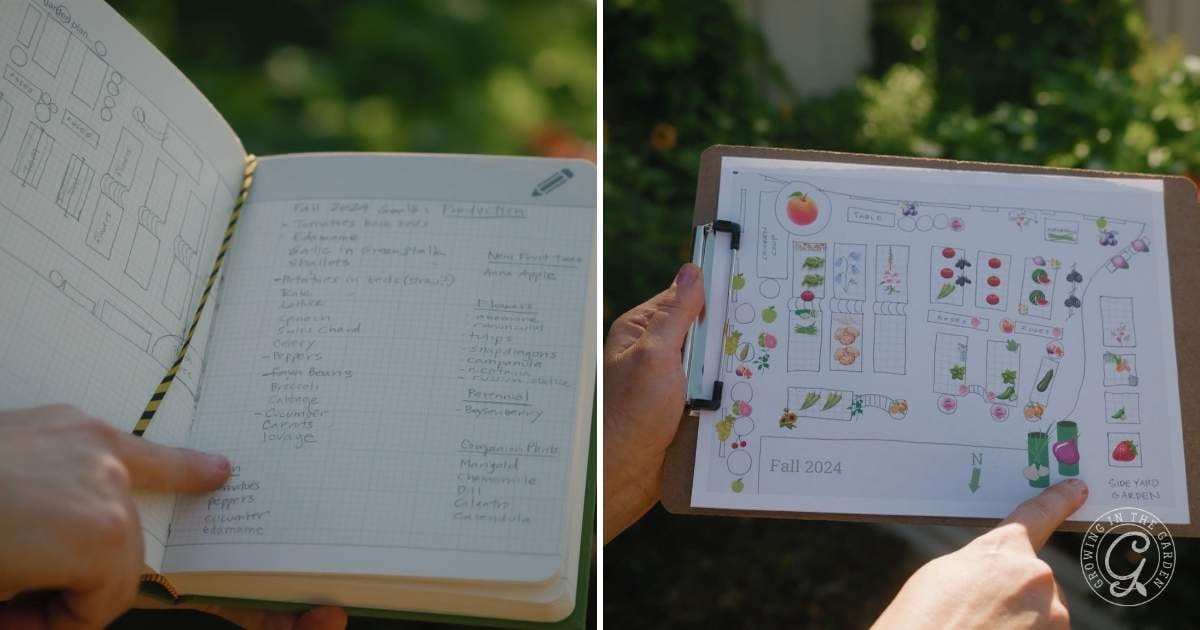 garden plan
PAVED
PAVED
Fall 2024 Goals: Production
- Tomatoes back ends
Edamame
Garlic in Greenstalk
Shallots
- Potatoes in ends (straw?)
Kale
Lettuce
Spinach
Swiss Chard
Celery
- Peppers
- Fava Beans
Broccoli
Cabbage
- Cucumber
Carrots
lovage
Peppers
cucumber
edamame
New Fruit Trees
Anna Apple
Flowers
anemone
ranunculus
tulips
- snapdragons
- campanula
- nicotiana
- russian statice
Perennial
Boysenberry
Companion Plants
Marigold
Chamomile
Dill
Cilantro
Calendula
CHICKEN COOP
TABLE
ROSES
ROSES
Fall 2024
N
SIDEYARD
GARDEN
GROWING IN THE GARDEN
G